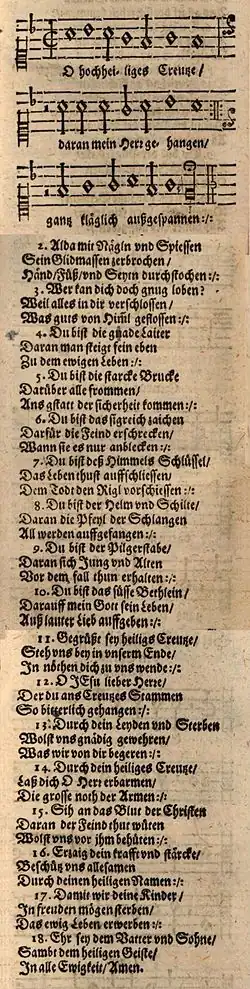 O hochhei- liges Creutze/
daran mein Herr ge- hangen/
gantz kläglich außgespannen:/:
2. Alda mit Nägln vnd Spiessen
Sein Glidmassen zerbrochen/
Händ/Füß/vnd Seytn durchstochen:/:
3. Wer kan dich doch gnug loben?
Weil alles in dir verschlossen/
Was guts von Him̃l geflossen:/:
4. Du bist die gnade Laiter
Daran man steigt fein eben
Zu dem ewigen Leben:/:
5. Du bist die starcke Brucke
Darüber alle frommen/
Ans gstatt der sicherheit kommen:/:
6. Du bist das sigreich zaichen
Darfür die Feind erschrecken/
Wann sie es nur anblecken:/:
7. Du bist deß Himmels Schlüssel/
Das Leben thust auffschliessen/
Dem Todt den Rigl vorschiessen:/:
8. Du bist der Helm vnd Schilte/
Daran die Pfeyl der Schlangen
All werden auffgefangen:/:
9. Du bist der Pilgerstabe/
Daran sich Jung vnd Alten
Vor dem fall thun erhalten:/:
10. Du bist das süsse Bethlein/
Darauff mein Gott sein Leben/
Auß lauter Lieb auffgeben:/:
11. Gegrüßt sey heiliges Creutze/
Steh vns bey in vnserm Ende/
In nöthen dich zu vns wende:/:
12. O JEsu lieber Herre/
Der du ans Creutzes Stammen
So bitterlich gehangen:/:
13. Durch dein Leyden vnd Sterben
Wolst vns gnädig gewehren/
Was wir von dir begeren:/:
14. Durch dein heiliges Creutze/
Laß dich O Herr erbarmen/
Die grosse noth der Armen:/:
15. Sih an das Blut der Christen
Daran der Feind thut wüten
Wolst vns vor jhm behüten:/:
16. Ertzaig dein krafft vnd stärcke/
Beschütz vns allesamen
Durch deinen heiligen Namen:/:
17. Damit wir deine Kinder/
In freuden mögen sterben/
Das ewig Leben erwerben:/:
18. Ehr sey dem Vatter vnd Sohne/
Sambt dem heiligen Geiste/
In alle Ewigkeit/Amen.